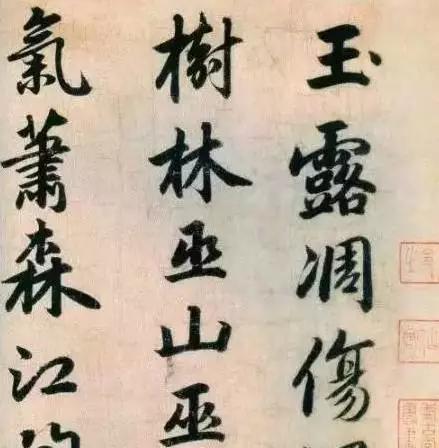 玉露凋傷
樹林巫山巫
氣蕭森江